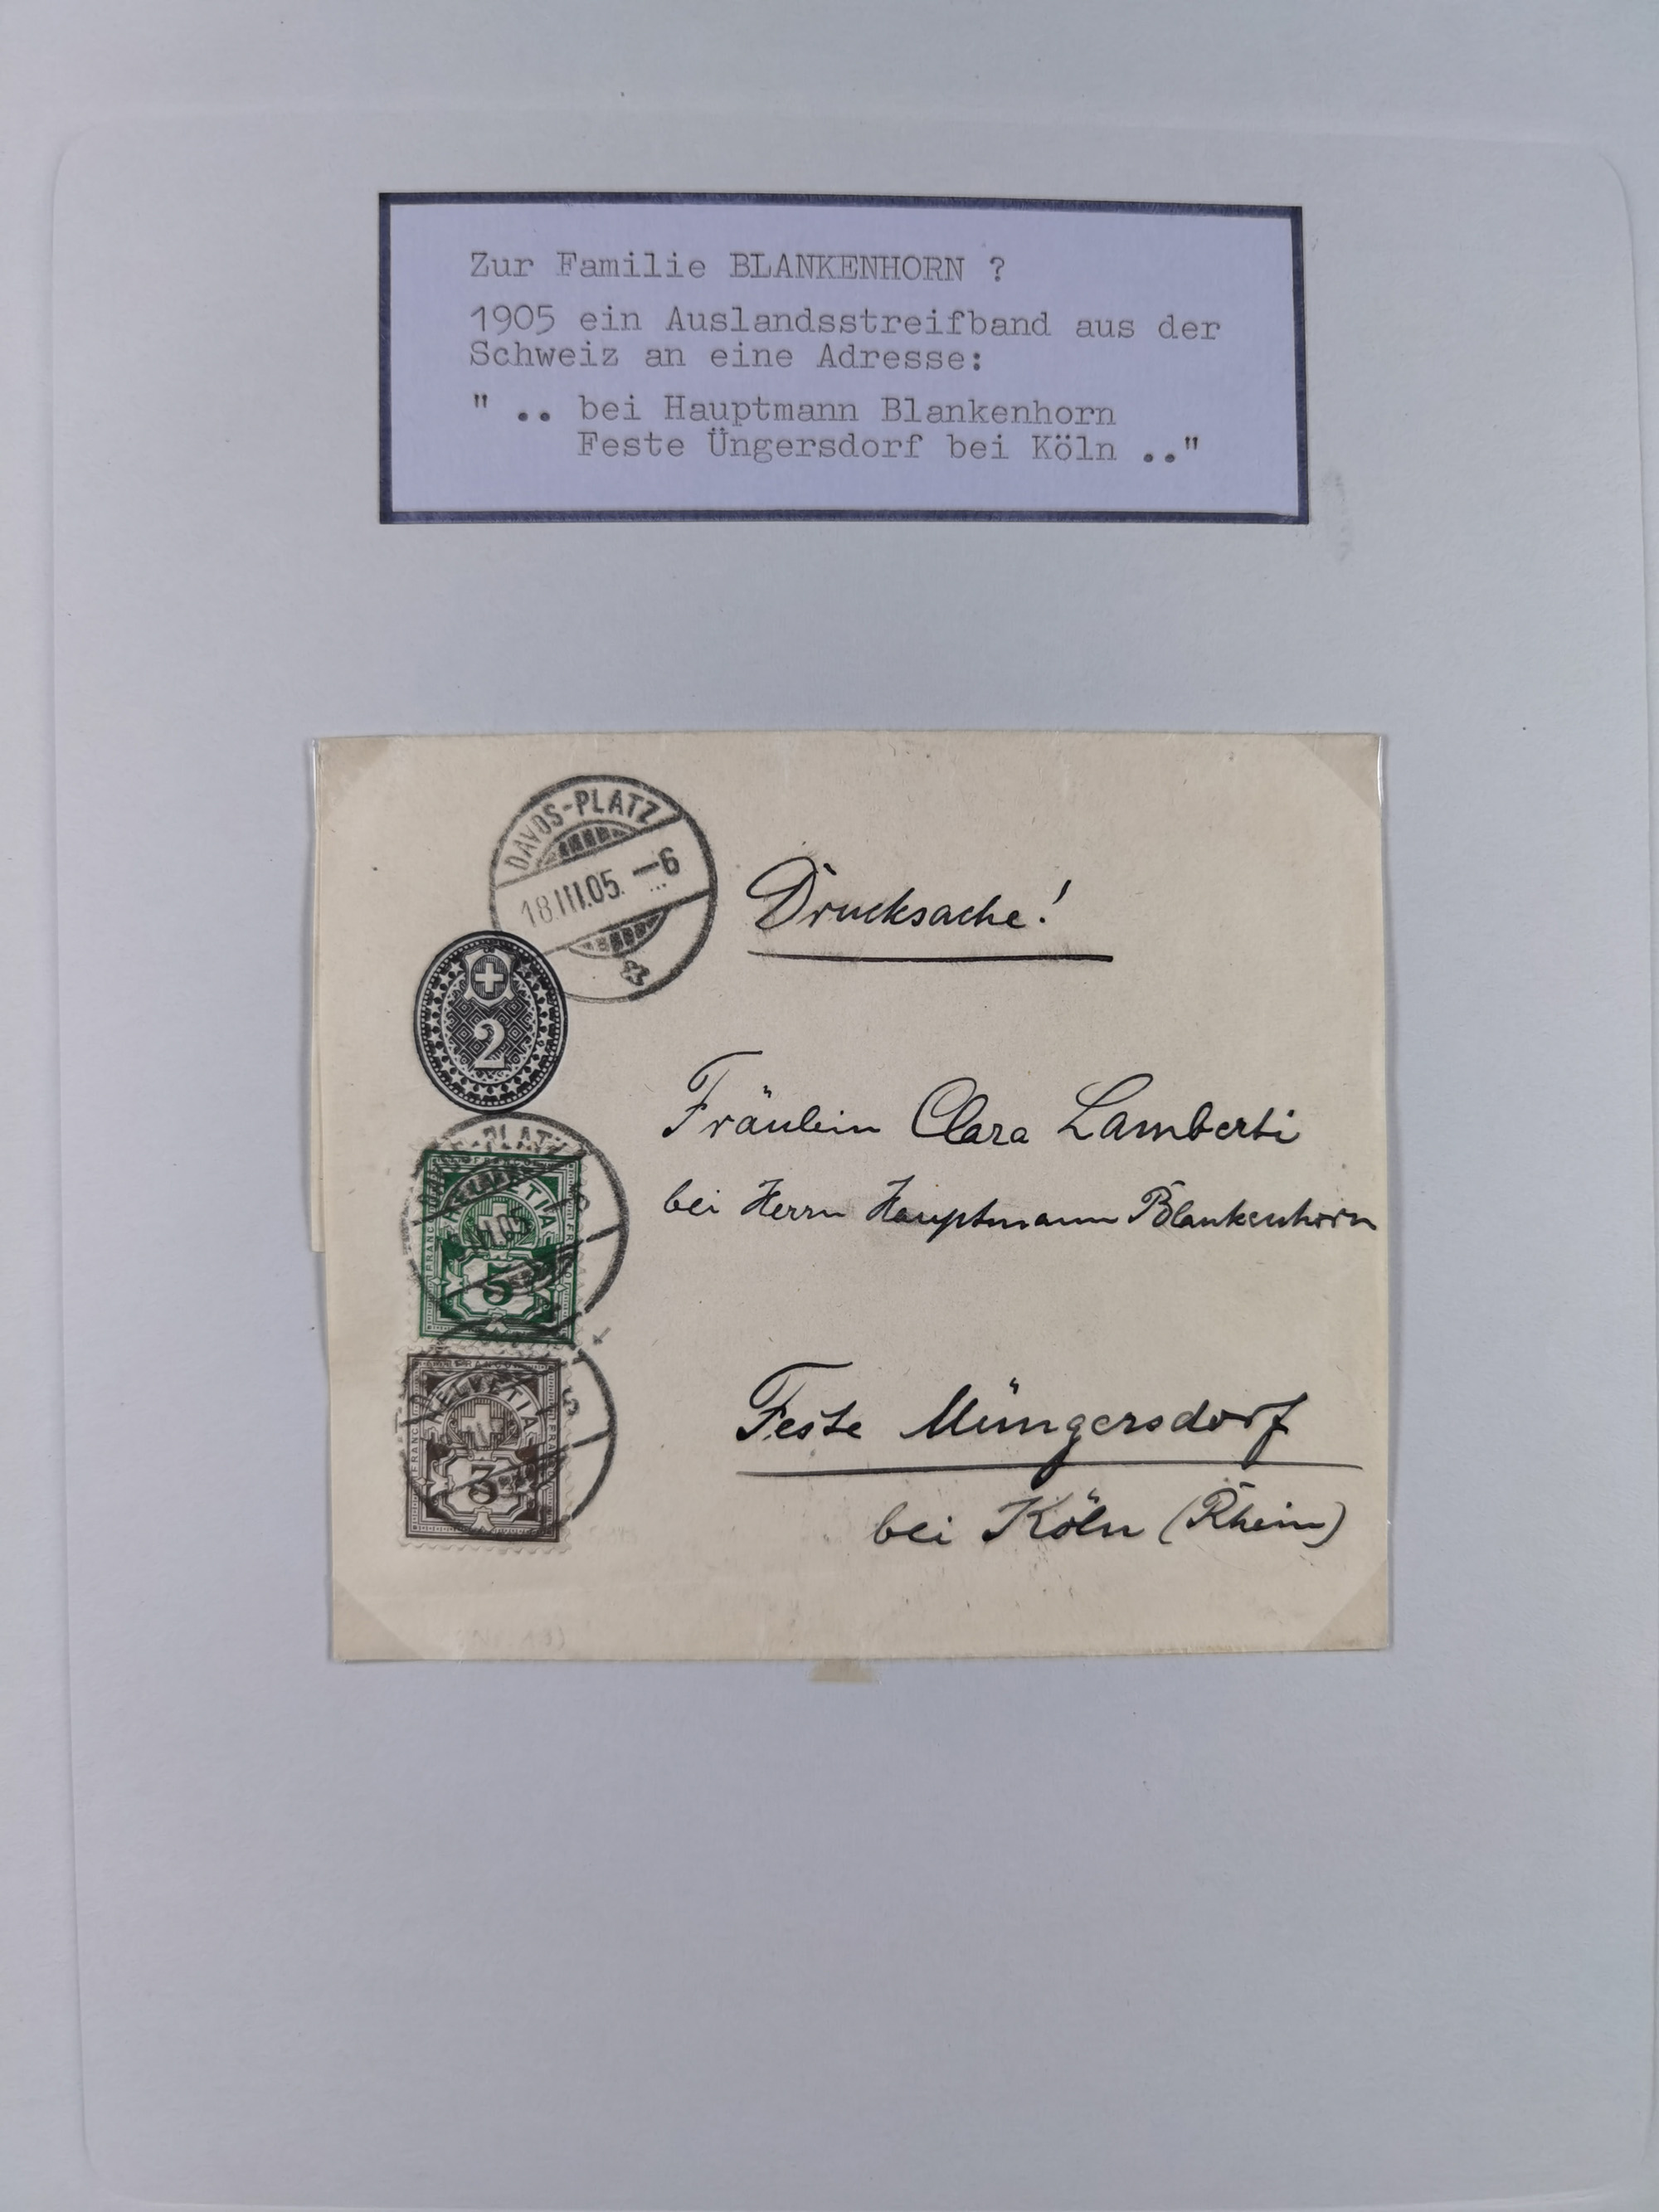 Zur Familie BLANKENHORN ?
1905 ein Auslandsstreifband aus der
Schweiz an eine Adresse:
" .. bei Hauptmann Blankenhorn
Feste Üngersdorf bei Köln .."
DAVOS-PLATZ
18.III.05. —6
Drucksache!
2
Fräulein Clara Lamberti
bei Herrn Hauptmann Blankenhorn
HELVETIA
FRANCO
5
Feste Müngersdorf
bei Köln (Rhein)
FRANCO
HELVETIA
3